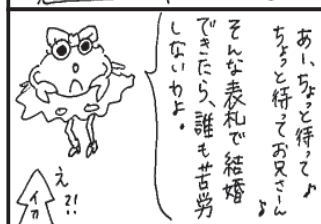 あー、ちょっと待って♪
ちょっと待ってお兄さーん♪
そんな表札で結婚
できたら、誰も苦労
しないわよ。
え?!
イカ